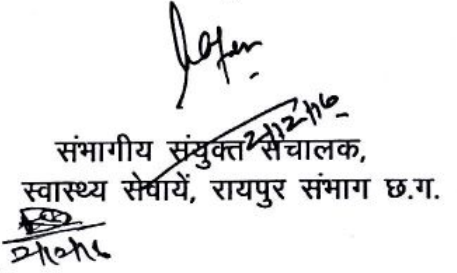 2/12/16
संभागीय संयुक्त संचालक,
स्वास्थ्य सेवायें, रायपुर संभाग छ.ग.
2/12/16